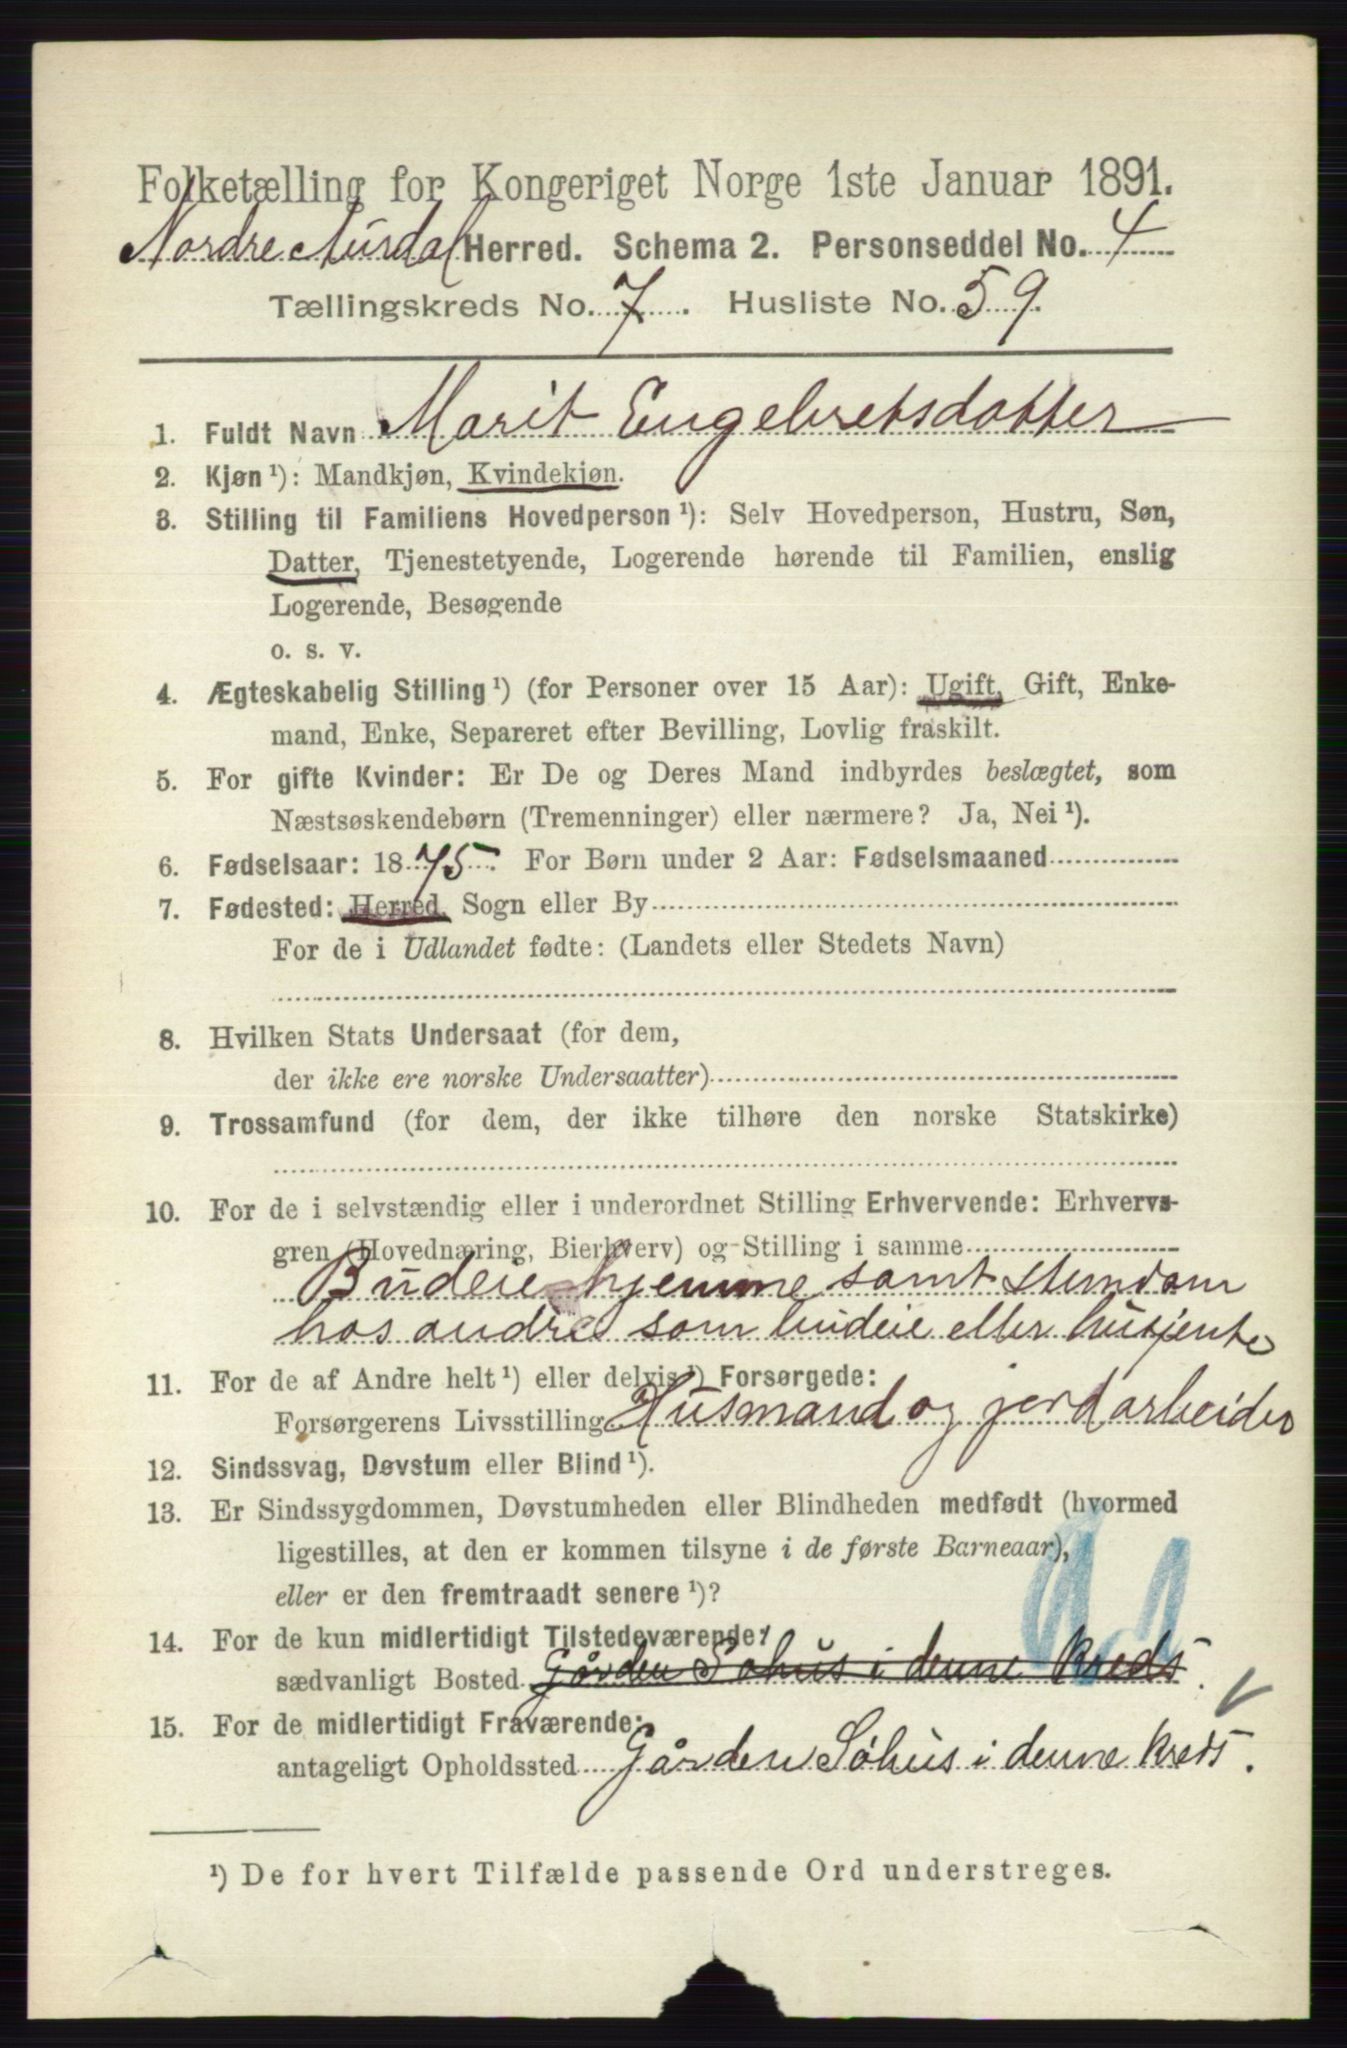 Folketælling for Kongeriget Norge 1ste Januar 1891.
Nordre Aurdal Herred. Schema 2. Personseddel No. 4
Tællingskreds No. 7. Husliste No. 59.
1. Fuldt Navn Marit Engebretsdatter
2. Kjøn ¹): Mandkjøn, Kvindekjøn.
3. Stilling til Familiens Hovedperson ¹): Selv Hovedperson, Hustru, Søn,
Datter, Tjenestetyende, Logerende hørende til Familien, enslig
Logerende, Besøgende
o. s. v.
4. Ægteskabelig Stilling ¹) (for Personer over 15 Aar): Ugift, Gift, Enke-
mand, Enke, Separeret efter Bevilling, Lovlig fraskilt.
5. For gifte Kvinder: Er De og Deres Mand indbyrdes beslægtet, som
Næstsøskendebørn (Tremenninger) eller nærmere? Ja, Nei ¹).
6. Fødselsaar: 1875. For Børn under 2 Aar: Fødselsmaaned
7. Fødested: Herred, Sogn eller By
For de i Udlandet fødte: (Landets eller Stedets Navn)
8. Hvilken Stats Undersaat (for dem,
der ikke ere norske Undersaatter)
9. Trossamfund (for dem, der ikke tilhøre den norske Statskirke)
10. For de i selvstændig eller i underordnet Stilling Erhvervende: Erhvervs-
gren (Hovednæring, Bierhverv) og Stilling i samme
Budeie hjemme samt stundom
hos andre som budeie eller husjente
11. For de af Andre helt ¹) eller delvis ¹) Forsørgede:
Forsørgerens Livsstilling Husmand og jordarbeider
12. Sindssvag, Døvstum eller Blind ¹).
13. Er Sindssygdommen, Døvstumheden eller Blindheden medfødt (hvormed
ligestilles, at den er kommen tilsyne i de første Barneaar),
eller er den fremtraadt senere ¹)?
14. For de kun midlertidigt Tilstedeværende:
sædvanligt Bosted Gården Søhus i denne kreds.
15. For de midlertidigt Fraværende:
antageligt Opholdssted Gården Søhus i denne kreds.
¹) De for hvert Tilfælde passende Ord understreges.